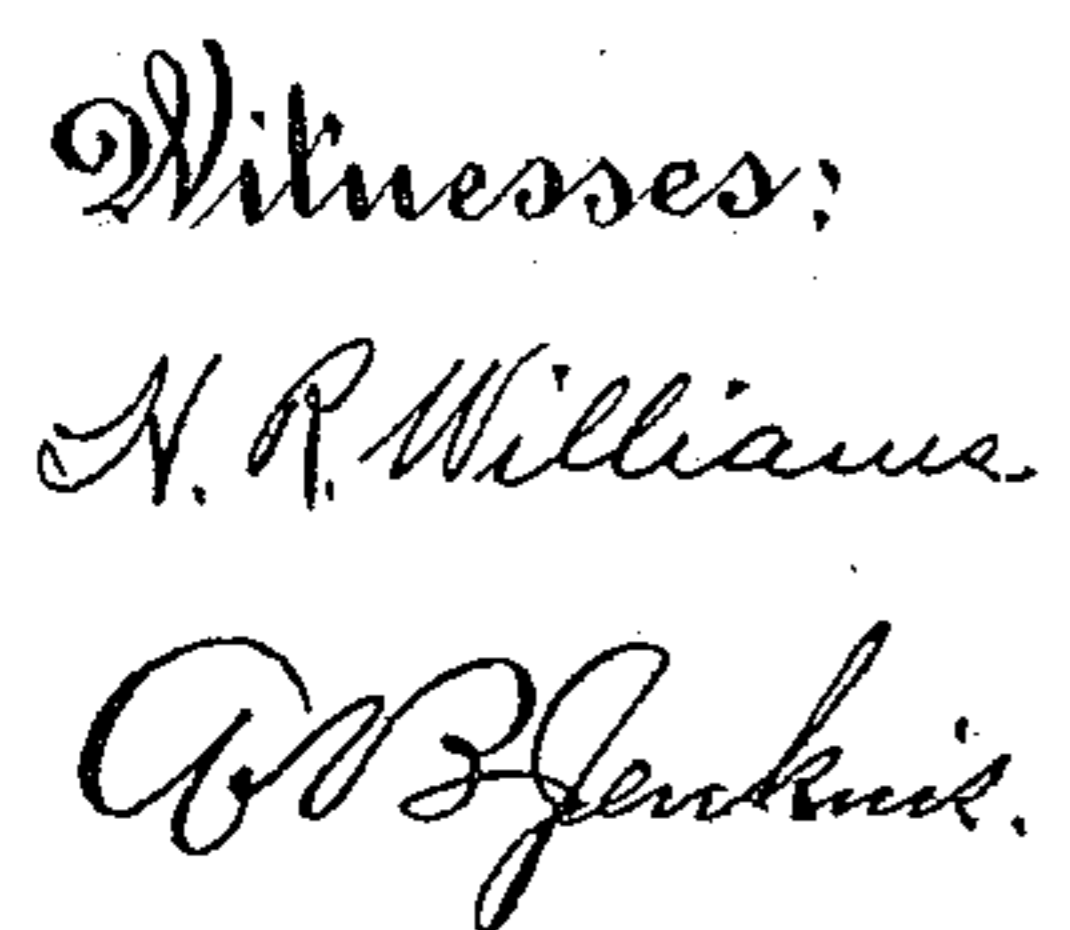 Witnesses:
H. R. Williams.
A B Jenkins.